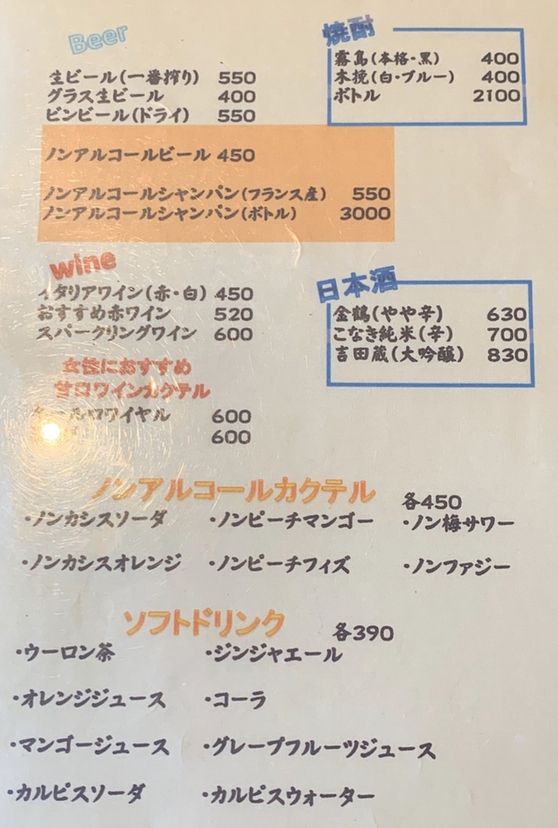 Beer
生ビール(一番搾り) 550
グラス生ビール 400
ビンビール(ドライ) 550
ノンアルコールビール 450
ノンアルコールシャンパン(フランス産) 550
ノンアルコールシャンパン(ボトル) 3000
焼酎
霧島(本格・黒) 400
木挽(白・ブルー) 400
ボトル 2100
wine
イタリアワイン(赤・白) 450
おすすめ赤ワイン 520
スパークリングワイン 600
女性におすすめ
甘口ワインカクテル
ロワイヤル 600
600
日本酒
金鶴(やや辛) 630
こなき純米(辛) 700
吉田蔵(大吟醸) 830
ノンアルコールカクテル 各450
・ノンカシスソーダ ・ノンピーチマンゴー ・ノン梅サワー
・ノンカシスオレンジ ・ノンピーチフィズ ・ノンファジー
ソフトドリンク 各390
・ウーロン茶 ・ジンジャエール
・オレンジジュース ・コーラ
・マンゴージュース ・グレープフルーツジュース
・カルピスソーダ ・カルピスウォーター